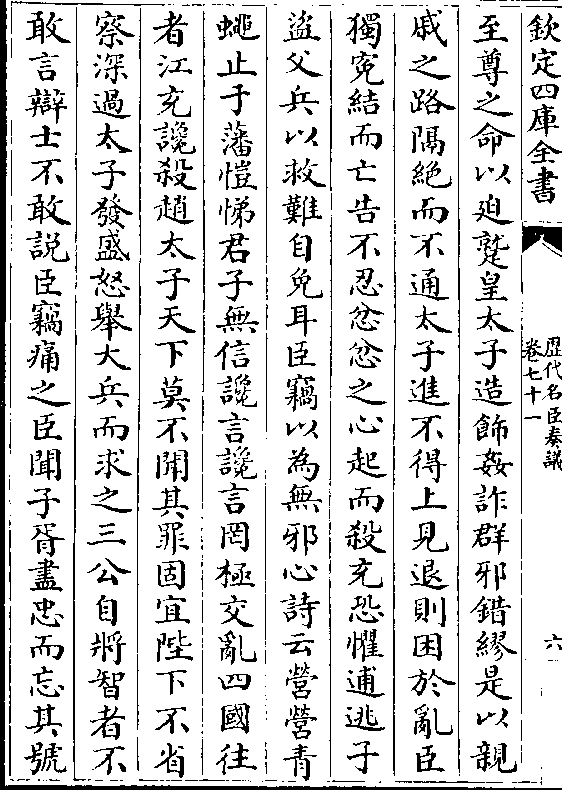 欽定四庫全書
歷代名臣奏議
卷七十一
六
至尊之命以迫蹵皇太子造飾姦詐群邪錯繆是以親
戚之路隔絶而不通太子進不得上見退則困於亂臣
獨寃結而亡告不忍忿忿之心起而殺充恐懼逋逃子
盜父兵以救難自免耳臣竊以為無邪心詩云營營青
蠅止于藩愷悌君子無信讒言讒言罔極交亂四國往
者江充讒殺趙太子天下莫不聞其罪固宜陛下不省
察深過太子發盛怒舉大兵而求之三公自將智者不
敢言辯士不敢說臣竊痛之臣聞子胥盡忠而忘其號